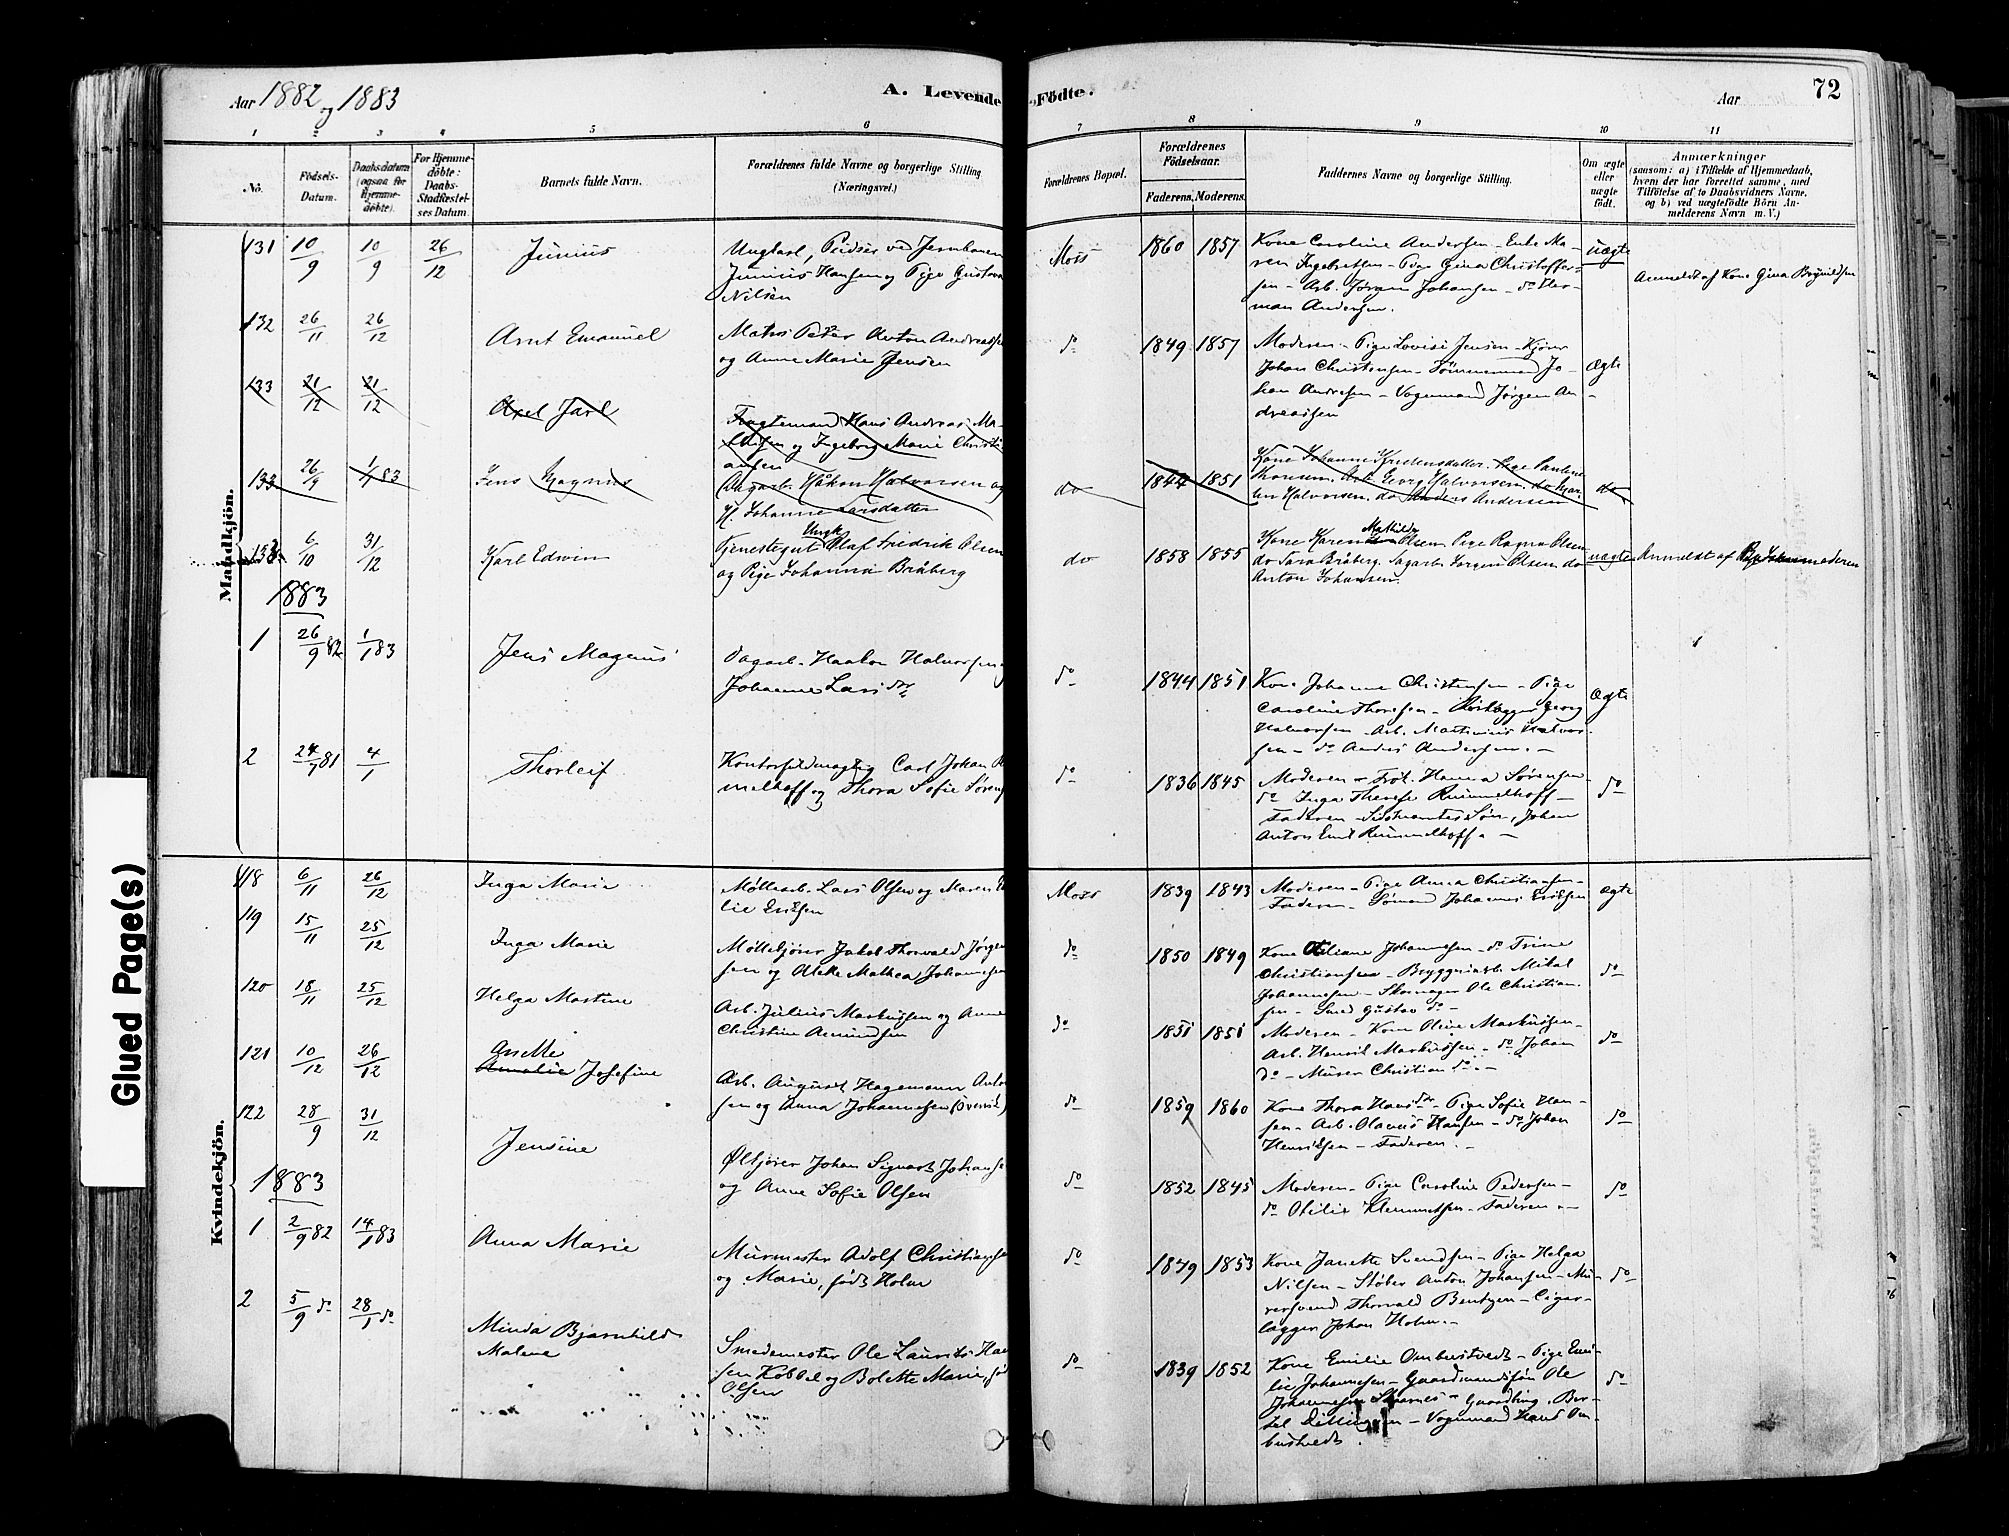 Aar 1882 og 1883
A. Levende Födte.
Aar
72
1 2 3 4 5 6 7 8 9 10 11
No.
Födsels-Datum.
Daabsdatum (ogsaa for Hjemme-döbte).
For Hjemme-döbte: Daabs-Stadfæstel-ses Datum.
Barnets fulde Navn.
Forældrenes fulde Navne og borgerlige Stilling (Næringsvei.)
Forældrenes Bopæl.
Forældrenes Födselsaar.
Faderens. Moderens.
Faddernes Navne og borgerlige Stilling.
Om ægte eller uægte födt.
Anmærkninger
(saasom: a) i Tilfælde af Hjemmedaab,
hvem der har forrettet samme, med
Tilföielse af to Daabsvidners Navne,
og b) ved uægtefödte Börn An-
melderens Navn m. V.)
Mandkjön.
131 10/9 10/9 26/12 Junius
Ungkarl, Pudser ved Jernbanen
Junius Hansen og Pige Gustava
Nilsen
Moss 1860 1857
Kone Caroline Andersen - Enke Ma-
ren Ingebretsen - Pige Gina Christoffer-
sen - Arb. Jørgen Johansen - do Her-
man Andersen.
uægte
Anmeldt af Kone Gina Brynildsen
132 26/11 26/12 Arnt Emanuel
Matros Peter Anton Andreassen
og Anne Marie Jensen
do 1849 1857
Moderen - Pige Lovise Jensen - Kjører
Johan Christensen - Tømmermand Jo-
han Andresen - Vognmand Jørgen An-
dreassen
Ægte
133 21/12 21/12 Axel Jarl
Fragtemand Hans Andreas Ma-
thisen og Ingeborg Marie Christi-
ansen
133 26/9 1/1 83 Jens Magnus
Dagarb. Håkon Halvorsen og
H. Johanne Larsdatter
do 1844 1851
Kone Johanne Kristensdatter. Pige Pauline
Thoresen. Arb. Georg Halvorsen. do Mar-
tin Halvorsen. do Anders Andersen
do
133 6/10 31/12 Karl Edwin
Tjenestegut Ungk. Olaf Fredrik Olsen
og Pige Johanna Bråberg
do 1858 1855
Kone Karen Mathilde Olsen Pige Ragna Olsen
do Sara Bråberg. Sagarb. Jørgen Olsen do
Anton Johansen.
uægte Anmeldt af moderen
1883
1 26/9 82 1/1 83 Jens Magnus
Dagarb. Haakon Halvorsen
Johanne Larsdr
do 1844 1851
Kone Johanne Christensen - Pige
Caroline Thoresen - Georg
Halvorsen - Arb. Martinius Halvor-
sen - do Anders Andersen. -
Ægte
2 24/7 81 4/1 Thorleif
Kontorfuldmægtig Carl Johan R
melhoff og Thora Sofie Sørens
do 1836 1845
Moderen - Frøk. Hanna Sørensen
do Inga Therese Rummelhoff -
Faderen - Johan
Anton Emil Rummelhoff. -
do
Kvindekjön.
118 6/11 26/12 Inga Maria
Møllearb. Lars Olsen og Maren
lie Eriksen
Moss 1839 1843
Moderen - Pige Anna Christiansen -
Faderen - Sømand Johannes Eriksen
ægte
119 15/11 25/12 Inga Marie
Møllekjører Jakob Thorvald Jørgen
sen og Alette Mathea Johannesen
do 1850 1849
Kone Johannesen - do Trine
Christiansen - Bryggeriarb. Mikal
Johannesen - Skomager Ole Christian-
sen - Smed Gustav do -
do
120 18/11 25/12 Helga Martine
Arb. Julius Markussen og Anne
Christine Amundsen
do 1851 1851
Moderen - Kone Oline Markussen -
Arb. Henrik Markussen - do Johan
do - Murer Christian do. -
do
121 10/12 26/12 Anette Amalie Josefine
Arb. August Hagemann Anton
sen og Anna Johannesen
do 1859 1860
Kone Thora Hansdr - Pige Sofie Han-
sen - Arb. Olavus Hansen - do Johan
Henriksen - Faderen. -
do
122 28/9 31/12 Jensine
Ølkjører Johan Sigvart Johanse
og Anne Sofie Olsen
do 1852 1845
Moderen - Pige Caroline Pedersen -
do Otilie Klemmetsen - Faderen. -
do
1883
1 2/9 82 14/1 83 Anna Marie
Murmester Adolf Christianse
og Marie, født Holm
do 1849 1853
Kone Janette Svendsen - Pige Helga
Nilsen - Støber Anton Johansen - Mu-
rersvend Thorvald Bentzen - Cigar-
lægger Johan Holm. -
do
2 5/9 do 28/1 do Minda Bjarnhilde
Malene
Smedemester Ole Laurits Han
sen Kobbel og Bolette Marie, fø
Olsen
do 1839 1852
Kone Emilie Ombustvedt - Pige Emi-
lie Johannesen - Gaardmandssøn Ole
Johannesen - Gaardbrug. Ber-
tel - Vognmand Hans Om-
bustvedt.
do
Glued Page(s)